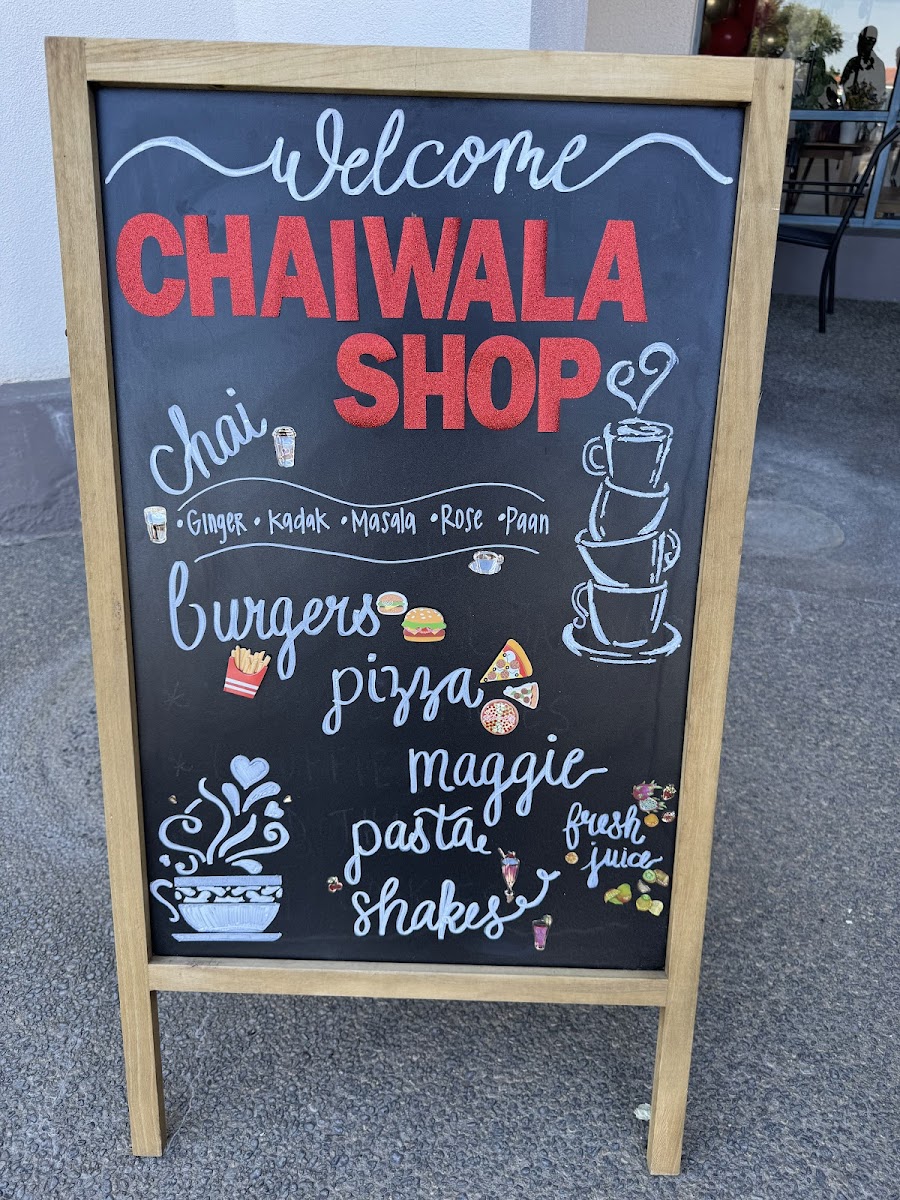 Welcome
CHAIWALA
SHOP
chai
• Ginger • Kadak • Masala • Rose • Paan
burgers
pizza
maggie
pasta
fresh
juice
shakes